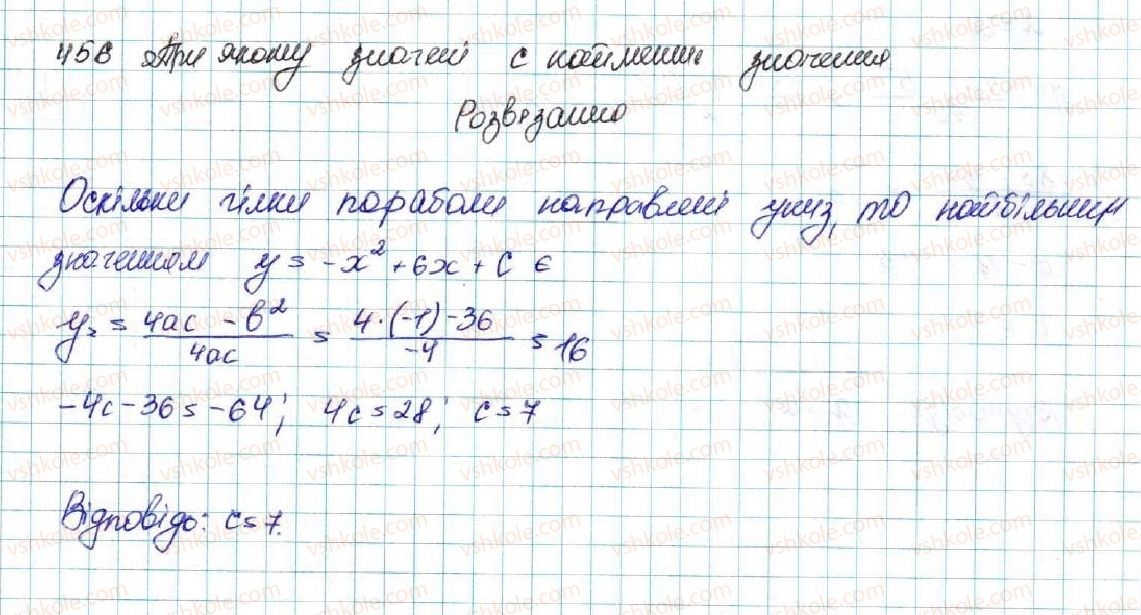 458 При якому значені с найменш значення
Розвязання
Оскільки гілки пораболи направлені униз, то найбільшим
значенням y = -x² + 6x + c є
y₂ = 4ac - b² / 4ac = 4·(-1) - 36 / -4 = 16
-4c - 36 = -64; 4c = 28; c = 7
Відповідь: c = 7.